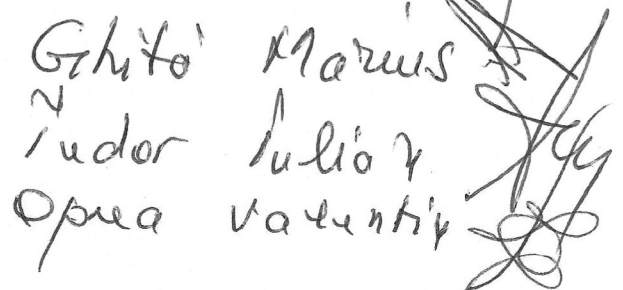 Ghiță Marius
Tudor Iulian
Oprea Valentin